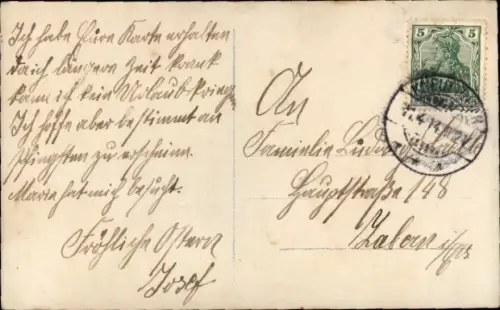 Ich habe Eure Karte erhalten
da ich längere Zeit krank
kann ich kein Urlaub kriegen
Ich hoffe aber bestimmt an
Pfingsten zu erscheinen.
Maria hat mich besucht.
Fröhliche Ostern
Josef
5 5
An
Familie Ludw
Hauptstraße 148
Zabern i/Els